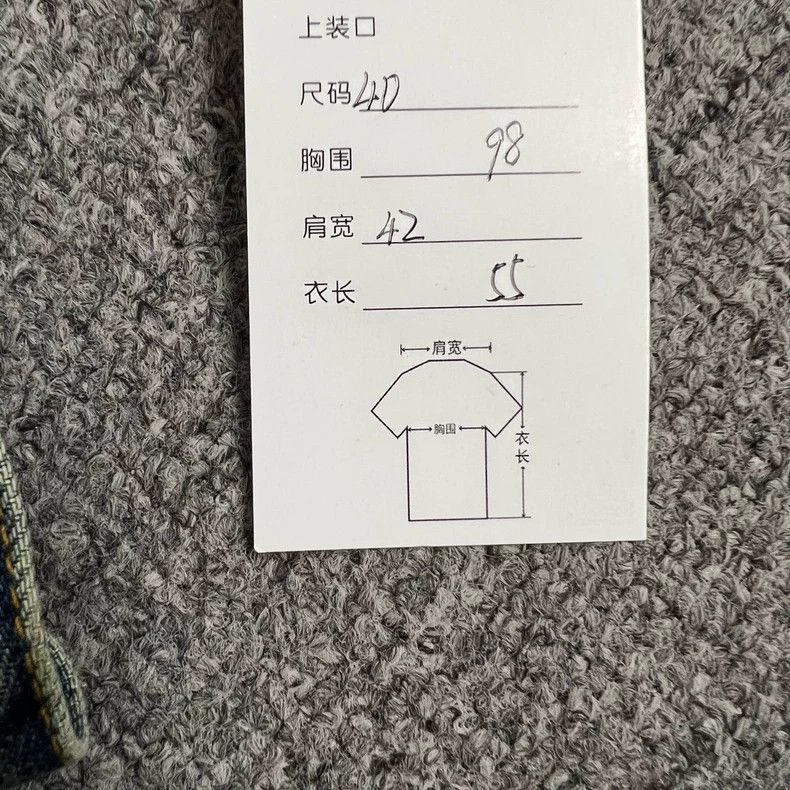 上装口
尺码 40
胸围 98
肩宽 42
衣长 55
肩宽
胸围
衣长